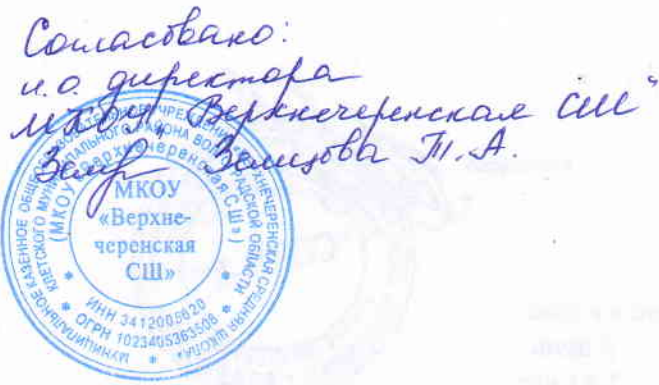 Согласовано:
и.о. директора
МКОУ "Верхнечеренская СШ"
Земцова Т.А.
МУНИЦИПАЛЬНОЕ КАЗЕННОЕ ОБЩЕОБРАЗОВАТЕЛЬНОЕ УЧРЕЖДЕНИЕ «ВЕРХНЕЧЕРЕНСКАЯ СРЕДНЯЯ ШКОЛА»
КЛЕТСКОГО МУНИЦИПАЛЬНОГО РАЙОНА ВОЛГОГРАДСКОЙ ОБЛАСТИ
(МКОУ «Верхнечеренская СШ»)
МКОУ
«Верхне-
черенская
СШ»
ИНН 3412005620
ОГРН 1023405363508